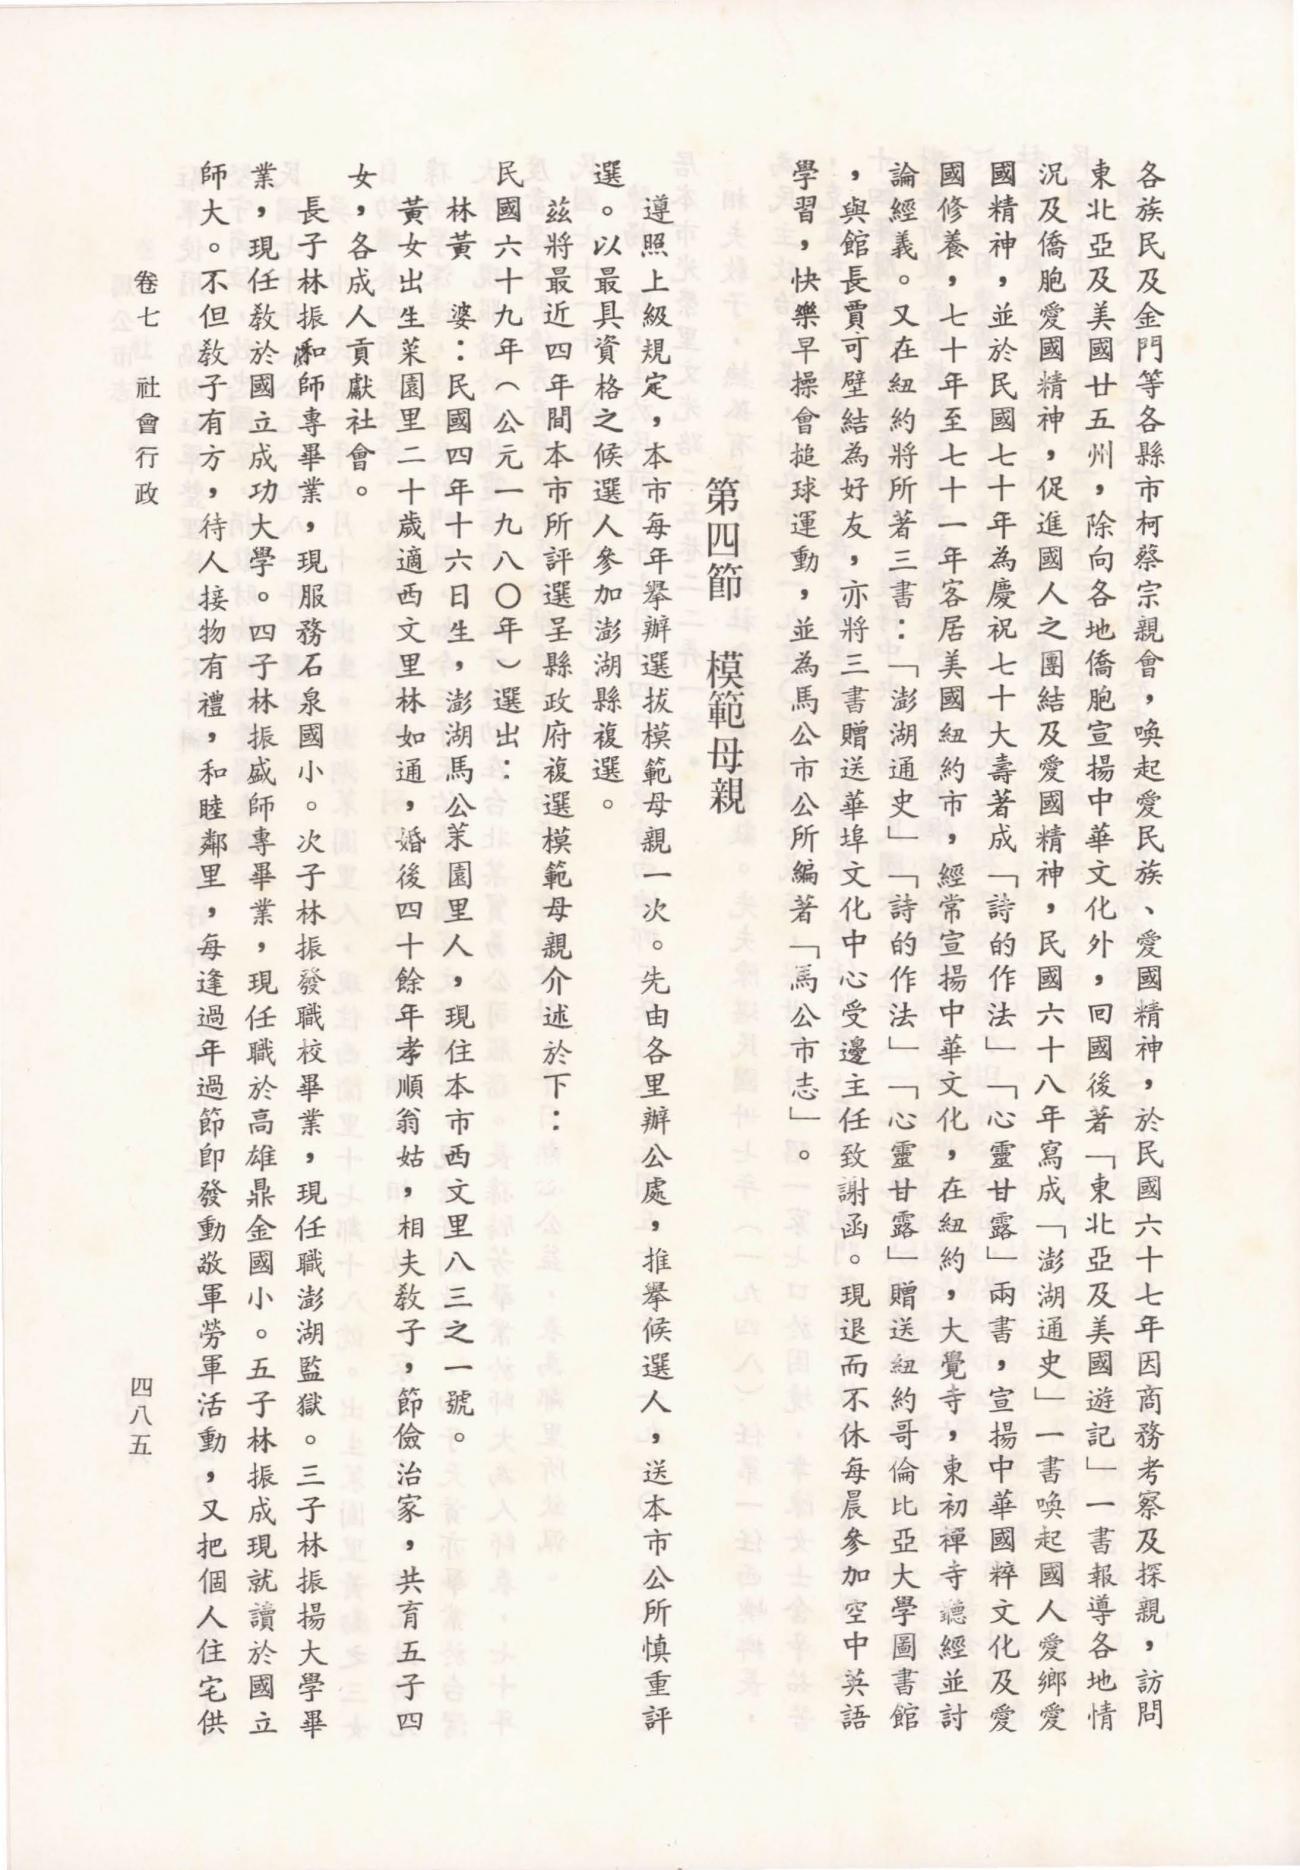 各族民及金門等各縣市柯蔡宗親會，喚起愛民族、愛國精神，於民國六十七年因商務考察及探親，訪問
東北亞及美國廿五州，除向各地僑胞宣揚中華文化外，回國後著「東北亞及美國遊記」一書報導各地情
況及僑胞愛國精神，促進國人之團結及愛國精神，民國六十八年寫成「澎湖通史」一書喚起國人愛鄉愛
國精神，並於民國七十年為慶祝七十大壽著成「詩的作法」「心靈甘露」兩書，宣揚中華國粹文化及愛
國修養，七十年至七十一年客居美國紐約市，經常宣揚中華文化，在紐約，大覺寺，東初禪寺聽經並討
論經義。又在紐約將所著三書：「澎湖通史」「詩的作法」「心靈甘露」贈送紐約哥倫比亞大學圖書館
，與館長賈可壁結為好友，亦將三書贈送華埠文化中心受邊主任致謝函。現退而不休每晨參加空中英語
學習，快樂早操會搥球運動，並為馬公市公所編著「馬公市志」。
第四節　模範母親
遵照上級規定，本市每年舉辦選拔模範母親一次。先由各里辦公處，推舉候選人，送本市公所慎重評
選。以最具資格之候選人參加澎湖縣複選。
茲將最近四年間本市所評選呈縣政府複選模範母親介述於下：
民國六十九年（公元一九八〇年）選出：
林黃　婆：民國四年十六日生，澎湖馬公菜園里人，現住本市西文里八三之一號。
黃女出生菜園里二十歲適西文里林如通，婚後四十餘年孝順翁姑，相夫教子，節儉治家，共育五子四
女，各成人貢獻社會。
長子林振和師專畢業，現服務石泉國小。次子林振發職校畢業，現任職澎湖監獄。三子林振揚大學畢
業，現任教於國立成功大學。四子林振盛師專畢業，現任職於高雄鼎金國小。五子林振成現就讀於國立
師大。不但教子有方，待人接物有禮，和睦鄰里，每逢過年過節即發動敬軍勞軍活動，又把個人住宅供
卷七　社會行政
四八五